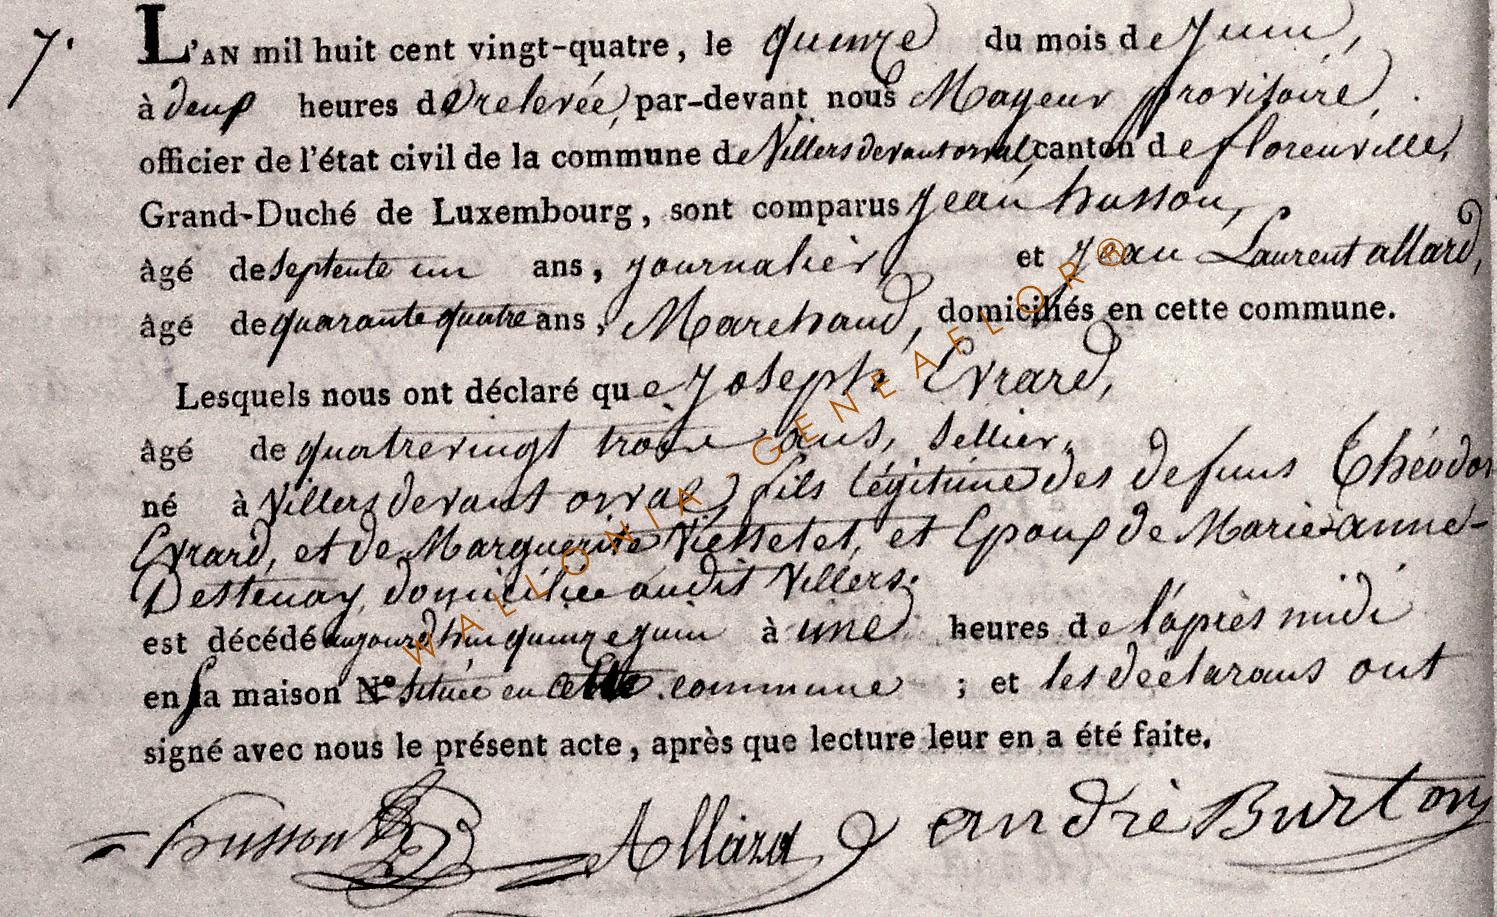 7.
L'AN mil huit cent vingt-quatre, le quinze du mois de juin,
à deux heures de relevée, par-devant nous Mayeur provisoire,
officier de l'état civil de la commune de Villers devant orval, canton de florenville,
Grand-Duché de Luxembourg, sont comparus jean husson,
âgé de septente un ans, journalier, et jean Laurent allard,
âgé de quarante quatre ans, Marchand, domiciliés en cette commune.
Lesquels nous ont déclaré que joseph Evrard,
âgé de quatrevingt trois ans, sellier,
né à Villers devant orval, fils légitime des defuns Théodor
Evrard, et de Marguerite et Epoux de Marie-anne-
Destenay, domicilié audit Villers.
est décédé aujourd'hui quinze juin à une heures de l'après midi
en sa maison N° située en cette commune ; et les déclarans ont
signé avec nous le présent acte, après que lecture leur en a été faite.
husson Allard andré Burton
WALLONIA-GENEAFLOR®